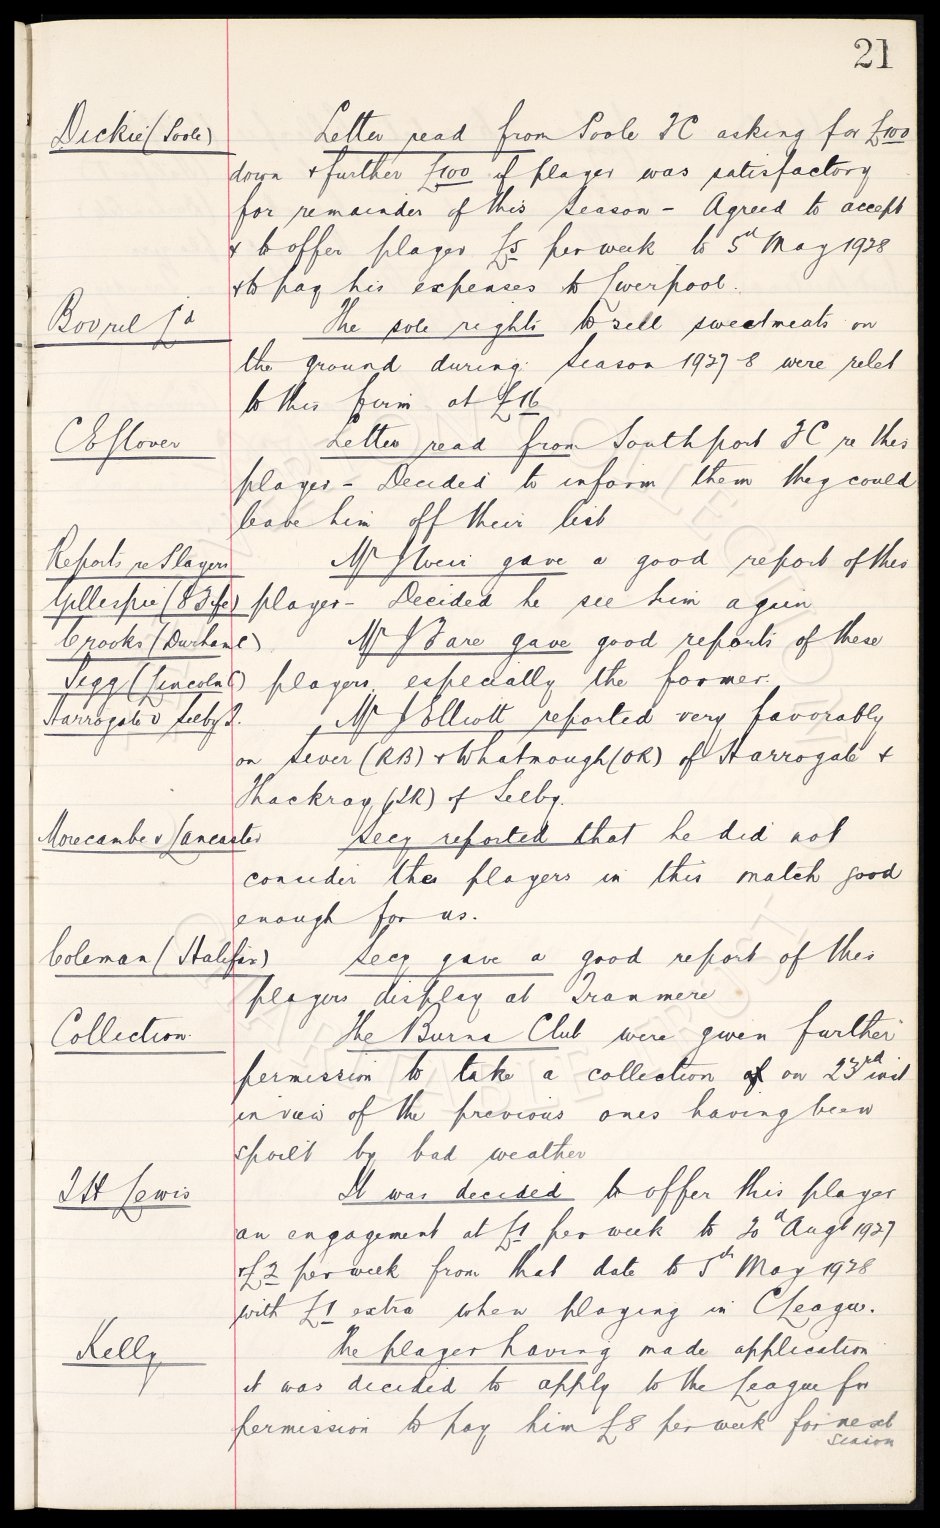 21
Dickie (Poole) Letter read from Poole FC asking for £100
down & further £100 if player was satisfactory
for remainder of this season - Agreed to accept
& to offer player £5 per week to 5th May 1928
& to pay his expenses to Liverpool.
Bovril Ld The sole rights to sell sweetmeats on
the ground during season 1927-8 were relet
to this firm at £16
C E Glover Letter read from Southport FC re this
player - Decided to inform them they could
leave him off their list
Reports re Players Mr J Weir gave a good report of this
Gillespie (E Fife) player - Decided he see him again
Crooks (Durham C) Mr J Fare gave good reports of these
Pegg (Lincoln C) players, especially the former.
Harrogate v Selby T. Mr J Elliott reported very favorably
on Sever (RB) & Whatmough (OR) of Harrogate &
Thackray (IR) of Selby.
Morecambe v Lancaster Secy reported that he did not
consider the players in this match good
enough for us.
Coleman (Halifax) Secy gave a good report of this
players display at Tranmere
Collection The Burns Club were given further
permission to take a collection on 23rd inst
in view of the previous ones having been
spoilt by bad weather
T H Lewis It was decided to offer this player
an engagement at £1 per week to 20th Augt 1927
& £2 per week from that date to 5th May 1928
with £1 extra when playing in C League.
Kelly The player having made application
it was decided to apply to the League for
permission to pay him £8 per week for next
season